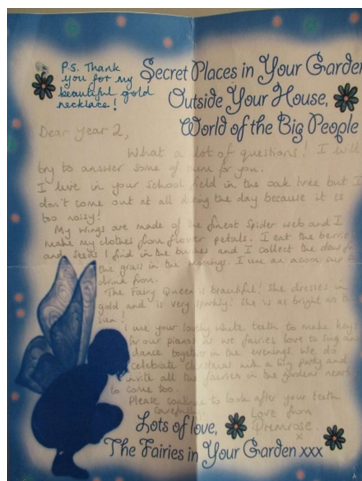 P.S. Thank
you for my
beautiful gold
necklace!
Secret Places in Your Garden
Outside Your House,
World of the Big People
Dear Year 2,
What a lot of questions! I will
try to answer some of them for you.
I live in your school field in the oak tree but I
don't come out at all during the day because it is
too noisy!
My wings are made of the finest spider web and I
make my clothes from flower petals. I eat the berries
and seeds I find in the bushes and I collect the dew from
the grass in the morning. I use an acorn cup to
drink from.
The Fairy Queen is beautiful! She dresses in
gold and is very sparkly! She is as bright as the
sun!
I use your lovely white teeth to make keys
for our pianos as we fairies love to sing and
dance together in the evenings. We do
celebrate Christmas with a big party and
invite all the fairies in the garden near
to come too.
Please continue to look after your teeth
carefully
Love from
Primrose
x
Lots of love,
The Fairies in Your Garden xxx